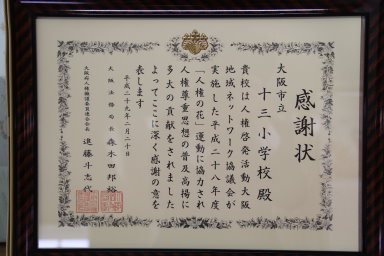 感謝状
大阪市立
十三小学校殿
貴校は人権啓発活動大阪
地域ネットワーク協議会が
実施した平成二十八年度
「人権の花」運動に協力され
人権尊重思想の普及高揚に
多大の貢献をされました
よってここに深く感謝の意を
表します
平成二十九年二月二十日
大阪法務局長 森木田邦裕
大阪府人権擁護委員連合会長 進藤斗志代